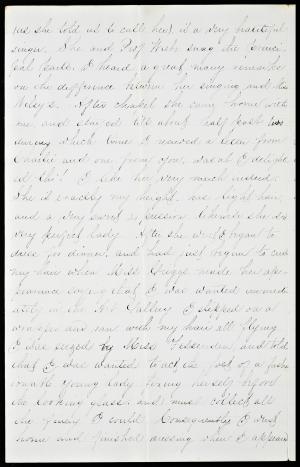 as she told us to call her, is a very beautiful
singer. She and Prof. sung the princi-
pal parts. I heard a great many remarks
on the difference between her singing and Mrs
After chapel she came home with
me, and stayed till about half past two
during which time I received a letter from
Charlie and one from you, was n't I delight
ed tho'! I like her very much indeed.
She is exactly my height, has light hair,
and a very sweet expression, likewise she is a
very perfect lady. After she went I began to
dress for dinner, and had just begun to curl
my hair when Miss Griggs made her ap-
pearance saying that I was wanted immedi-
ately in the Art Gallery. I slipped on a
wrapper and ran with my hair all flying.
I was seized by Miss Fessenden, and told
that I was wanted to act the part of a fashi
onable young lady fixing herself before
the looking glass, and must collect all
the finery I could. Consequently I went
home and finished dressing when I appeared